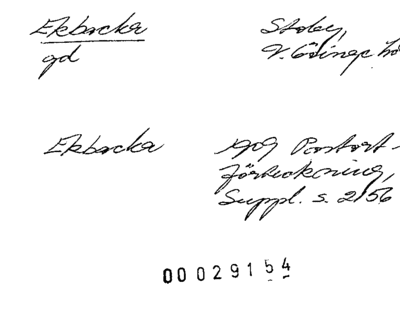 Ekbacka
gd
Stoby,
V. Göinge hd
Ekbacka
1909 Postort-
förteckning,
Suppl. s. 256
00029154